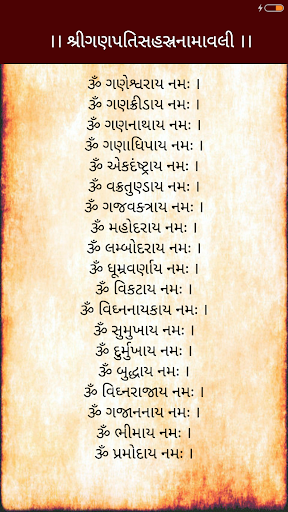 ।। શ્રીગણપતિસહસ્રનામાવલી ।।
ૐ ગણેશ્વરાય નમઃ ।
ૐ ગણક્રીડાય નમઃ ।
ૐ ગણનાથાય નમઃ ।
ૐ ગણાધિપાય નમઃ ।
ૐ એકદંષ્ટ્રાય નમઃ ।
ૐ વક્રતુણ્ડાય નમઃ ।
ૐ ગજવક્ત્રાય નમઃ ।
ૐ મહોદરાય નમઃ ।
ૐ લમ્બોદરાય નમઃ ।
ૐ ધૂમ્રવર્ણાય નમઃ ।
ૐ વિકટાય નમઃ ।
ૐ વિઘ્નનાયકાય નમઃ ।
ૐ સુમુખાય નમઃ ।
ૐ દુર્મુખાય નમઃ ।
ૐ બુદ્ધાય નમઃ ।
ૐ વિઘ્નરાજાય નમઃ ।
ૐ ગજાનનાય નમઃ ।
ૐ ભીમાય નમઃ ।
ૐ પ્રમોદાય નમઃ ।